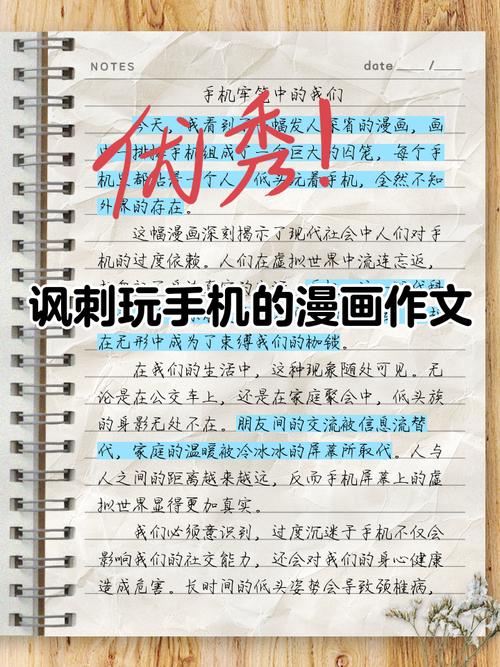 NOTES
date ___ / ___
手机牢笼中的我们
优秀！
今天，我看到了一幅发人深省的漫画，画
排排手机组成了一个巨大的囚笼，每个手
机里都站着一个人，低头玩着手机，全然不知
外界的存在。
这幅漫画深刻揭示了现代社会中人们对手
机的过度依赖。人们在虚拟世界中流连忘返，
讽刺玩手机的漫画作文
在无形中成为了束缚我们的枷锁。
在我们的生活中，这种现象随处可见。无
论是在公交车上，还是在家庭聚会中，低头族
的身影无处不在。朋友间的交流被信息流替
代，家庭的温暖被冷冰冰的屏幕所取代。人与
人之间的距离越来越远，反而手机屏幕上的虚
拟世界显得更加真实。
我们必须意识到，过度沉迷于手机不仅会
影响我们的社交能力，还会对我们的身心健康
造成危害。长时间的低头姿势会导致颈椎病，